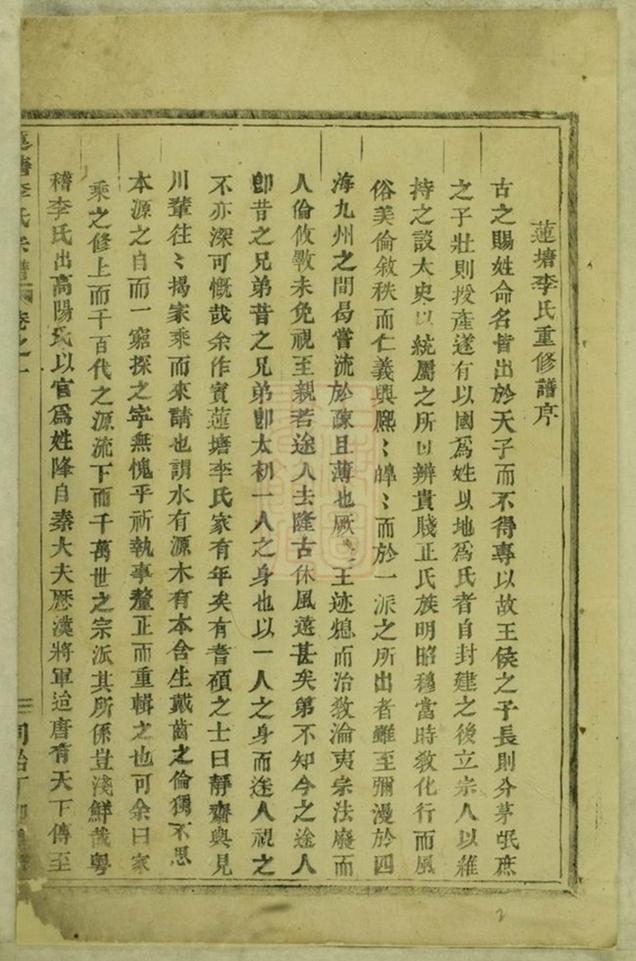 蓮塘李氏重修譜序
古之賜姓命名皆出於天子而不得專以故王侯之子長則分茅氓庶
之子壯則授產遂有以國爲姓以地爲氏者自封建之後立宗人以維
持之設太史以統屬之所以辨貴賤正氏族明昭穆當時敎化行而風
俗美倫敘秩而仁義興熈〻皥〻而於一派之所出者雖至彌漫於四
海九州之間曷嘗流於疎且薄也厥後王迹熄而治敎淪夷宗法廢而
人倫攸斁未免視至親若途人去隆古休風遠甚矣第不知今之途人
卽昔之兄弟昔之兄弟卽太初一人之身也以一人之身而途人視之
不亦深可慨哉余作賓蓮塘李氏家有年矣有耆碩之士曰靜齋與見
川輩往〻揭家乘而來請也謂水有源木有本含生戴齒之倫獨不思
本源之自而一窮探之寧無愧乎祈執事釐正而重輯之也可余曰家
乘之修上而千百代之源流下而千萬世之宗派其所係豈淺鮮哉粤
稽李氏出高陽氏以官爲姓降自秦大夫歷漢將軍迨唐有天下傳至
蓮塘李氏宗譜 卷之一
2